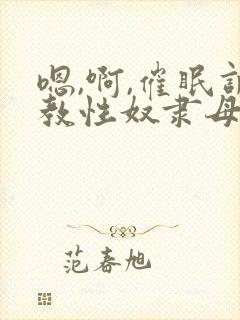 嗯,啊,催眠
教性奴隶母
范春旭